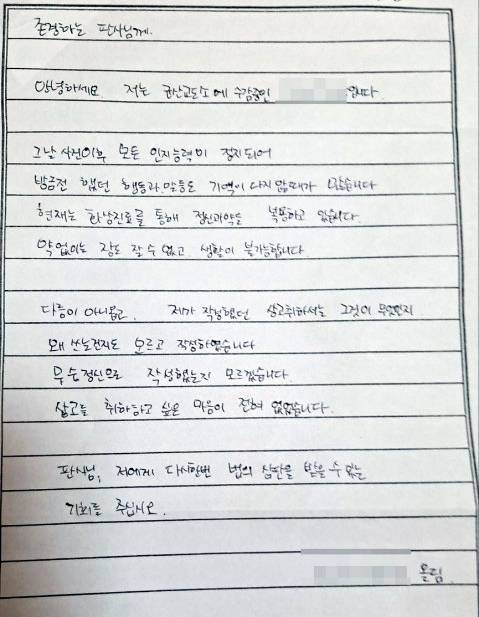 존경하는 판사님께.
안녕하세요 저는 군산교도소에 수감중인 입니다.
그날 사건이후 모든 인지능력이 정지되어
방금전 했던 행동과 말들도 기억이 나지 않을때가 많습니다
현재는 화상진료를 통해 정신과약을 복용하고 있습니다.
약 없이는 잠도 잘 수 없고 생활이 불가능합니다
다름이 아니옵고. 제가 작성했던 상고취하서는 그것이 무엇인지
왜 쓰는건지도 모르고 작성하였습니다
무슨정신으로 작성했는지 모르겠습니다
상고를 취하하고 싶은 마음이 전혀 없었습니다.
판사님, 저에게 다시한번 법의 심판을 받을 수 있는
기회를 주십시오.
올림.